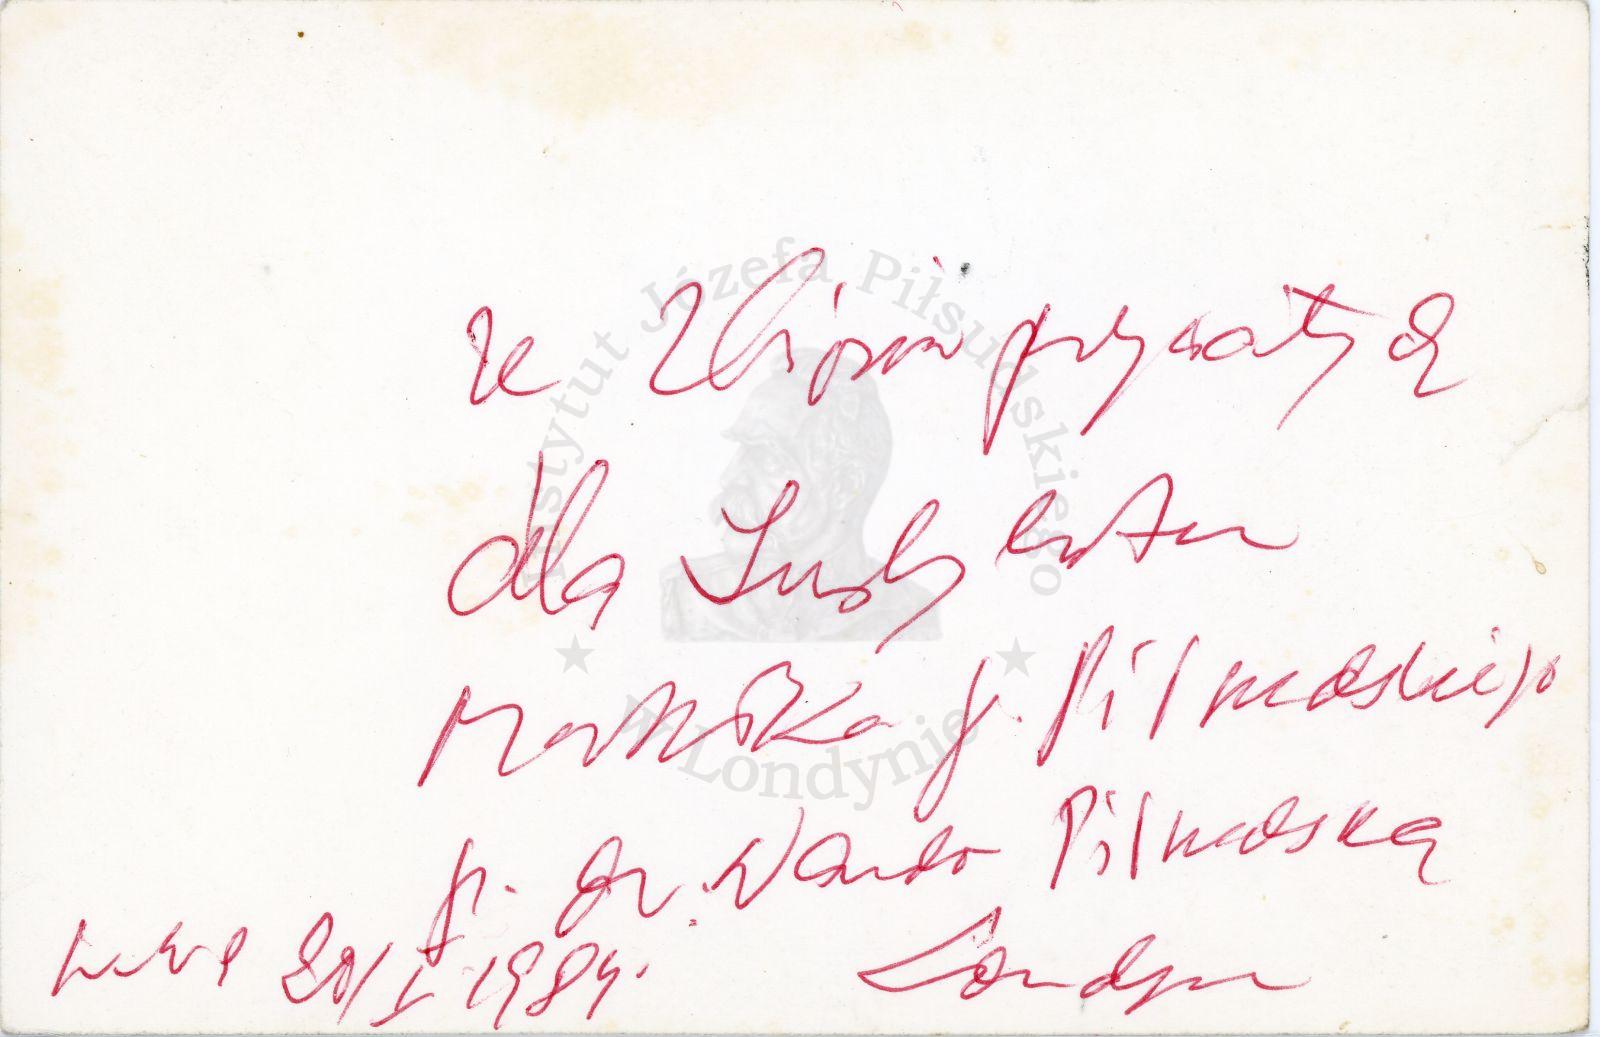 ze zbiorów prywatnych
dla Instytutu
Marszałka J. Piłsudskiego
p. dr. Wanda Piłsudską
20/I 1984.
Londyn
Instytut Józefa Piłsudskiego
w Londynie